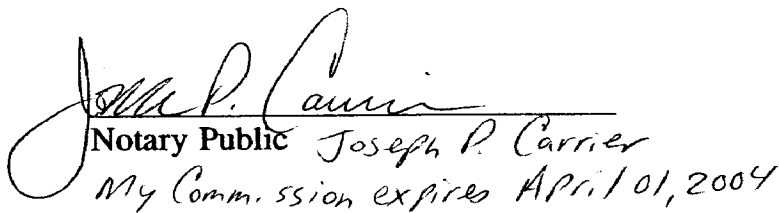 Joseph P. Carrier
Notary Public Joseph P. Carrier
My Commission expires April 01, 2004